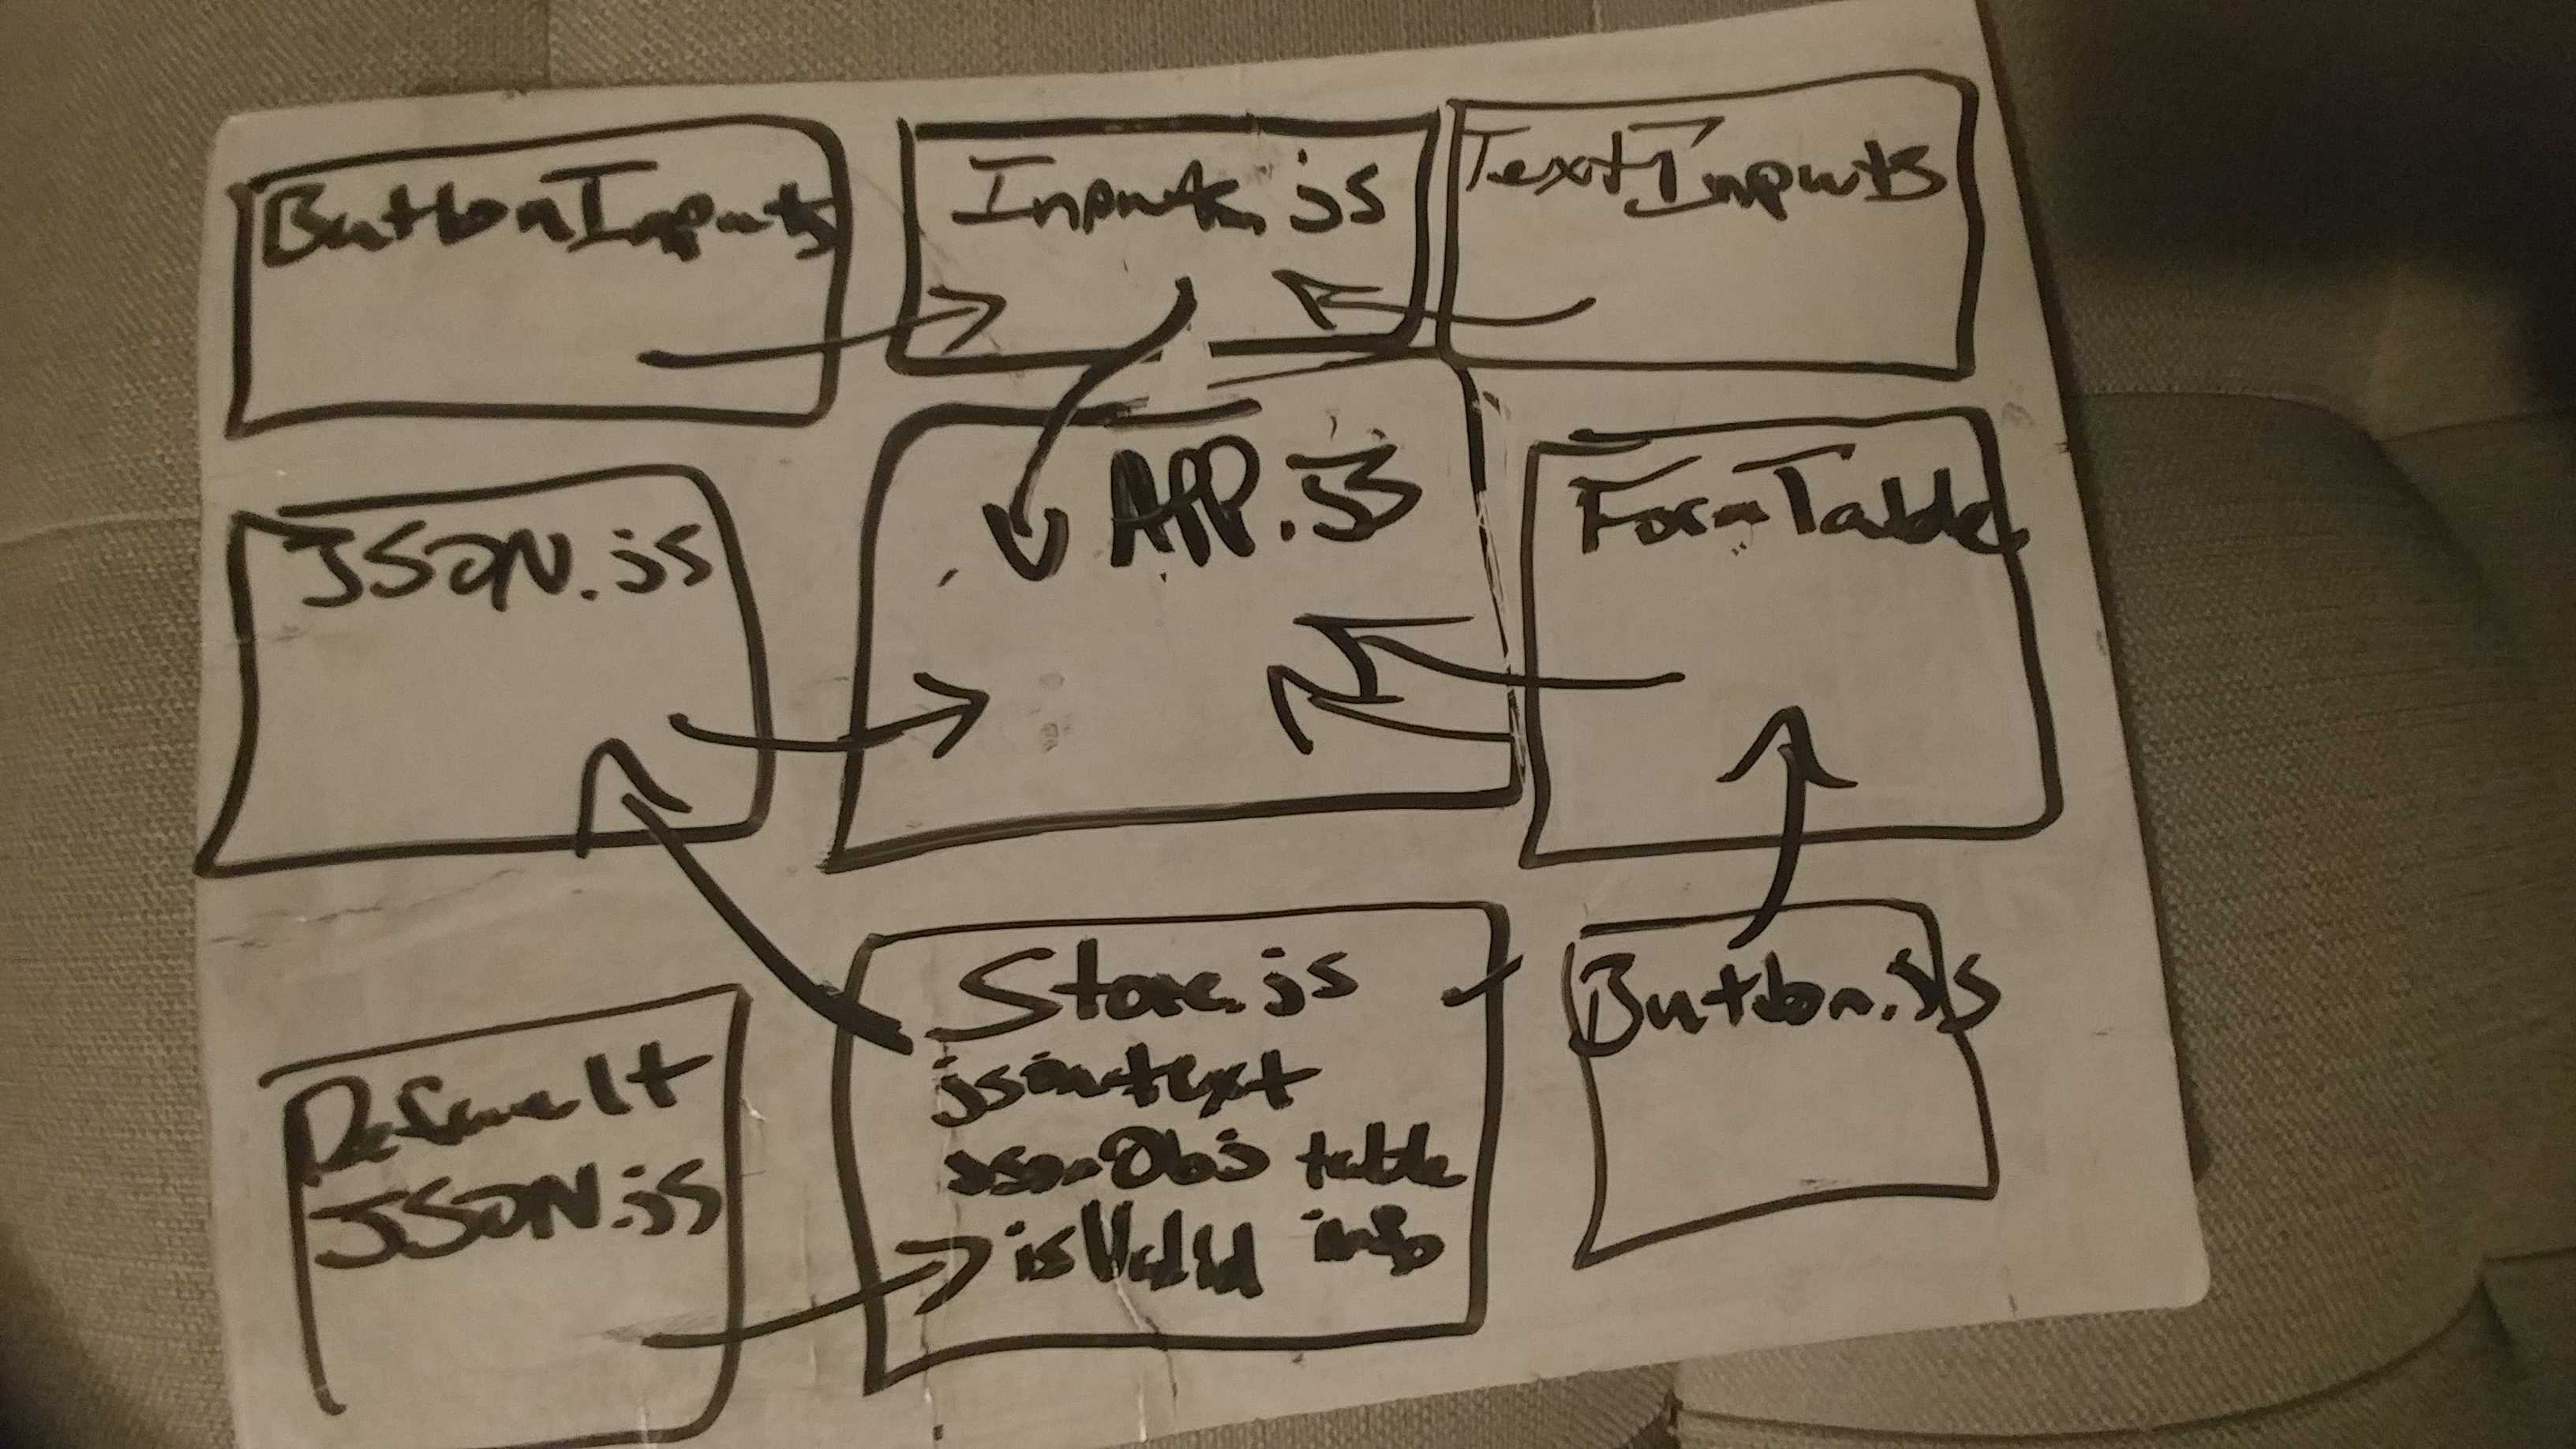 ButtonInputs
Inputs.js
TextInputs
JSON.js
APP.js
FormTable
Default
JSON.js
Store.js
jsontext
jsonObj table
isValid info
Button.js